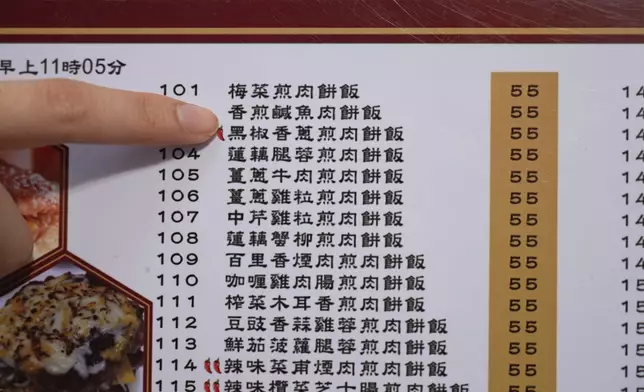 早上11時05分
101 梅菜煎肉餅飯 55 14
香煎鹹魚肉餅飯 55 14
黑椒香蔥煎肉餅飯 55 14
104 蓮藕腿蓉煎肉餅飯 55 14
105 薑蔥牛肉煎肉餅飯 55 14
106 薑蔥雞粒煎肉餅飯 55 14
107 中芹雞粒煎肉餅飯 55 14
108 蓮藕蟹柳煎肉餅飯 55 14
109 百里香煙肉煎肉餅飯 55 14
110 咖喱雞肉腸煎肉餅飯 55 15
111 榨菜木耳香煎肉餅飯 55 15
112 豆豉香蒜雞蓉煎肉餅飯 55 15
113 鮮茄菠蘿腿蓉煎肉餅飯 55 15
114 辣味菜甫煙肉煎肉餅飯 55 15
115 辣味欖菜芝士腸煎肉餅飯 55 15